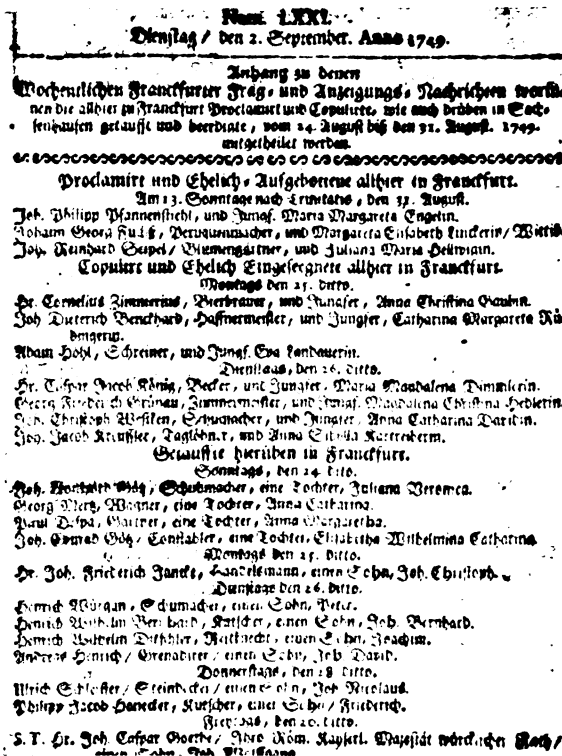 Num. LXXI.
Dienstag / den 2. September. Anno 1749.
Anhang zu denen
Wochentlichen Franckfurter Frag- und Anzeigungs-Nachrichten
nen die allhier zu Franckfurt Proclamirt und Copulirte, wie auch drüben in Sach-
senhausen getauffte und beerdigte, vom 24. August biß den 31. August. 1749.
mitgetheilet werden.
Proclamirt und Ehelich-Aufgebottene allhier in Franckfurt.
Am 13. Sonntage nach Trinitatis, den 31. August.
Joh. Philipp Pfannenstiehl, und Jungf. Maria Margareta Engelin.
Johann Georg Peruquenmacher, und Margareta Elisabeth
Joh. Reinhard Seipel / Blumengärtner, und Juliana Maria
Copulirt und Ehelich Eingesegnete allhier in Franckfurt.
Montags den 25. ditto.
Hr. Cornelius Zimmerius, Bierbrauer, und Jungfer, Anna Christina
Joh Dieterich Haffnermeister, und Jungfer, Catharina Margareta
Adam Hohl, Schreiner, und Jungf. Eva Landauerin.
Dienstags, den 26. ditto.
Hr. Caspar Jacob König, Becker, und Jungfer, Maria Magdalena
Georg Friederich Grünau, Zimmermeister, und Jungf. Magdalena Christina
Joh. Christoph Schumacher, und Jungfer, Anna Catharina
Joh. Jacob Taglöhner, und Anna
Getauffte hierüben in Franckfurt.
Sonntags, den 24 dito.
Joh. Götz, Schuhmacher, eine Tochter, Juliana Veronica.
Georg Mertz, Wagner, eine Tochter, Anna Catharina.
Paul Gärtner, eine Tochter, Anna Margaretha.
Joh. Conrad Götz / Constabler, eine Tochter, Elisabetha Wilhelmina Catharina
Montags den 25. ditto.
Hr. Joh. Friederich Handelsmann, einen Sohn, Joh. Christoph.
Dienstags den 26. dito.
Henrich Schumacher, einen Sohn, Peter.
Henrich Wilhelm Bernhard, Kutscher, einen Sohn, Joh. Bernhard.
Henrich Wilhelm Reitknecht, einen Sohn, Joachim.
Andreas Henrich / Grenadirer / einen Sohn, Joh. David.
Donnerstags, den 28 ditto.
Ulrich Steindecker / einen Sohn, Joh Nicolaus.
Philipp Jacob Kutscher, einen Sohn / Friederich.
Freytags, den ditto.
S. T. Hr. Joh. Caspar Goethe / Ihro Röm. Kayserl. Majestät würcklicher Rath /
einen Sohn, Joh. Wolfgang